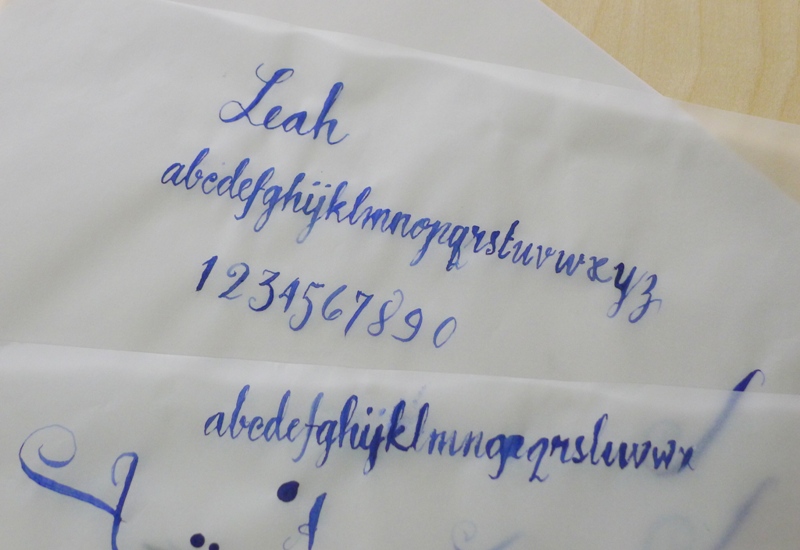 Leah
abcdefghijklmnopqrstuvwxyz
1234567890
abcdefghijklmnopqrstuvwx